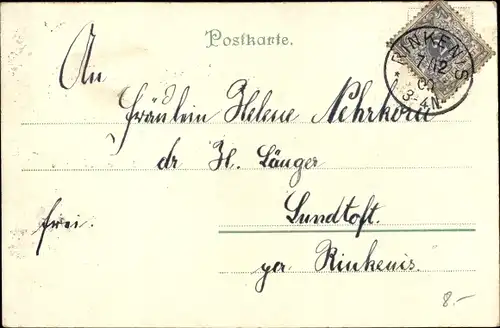 Postkarte.
RINKENIS
7 12
3-4N.
An
Fräulein Helene Nehrkorn
dr H. Länger
Lundtoft.
frei.
per Rinkenis.
8.-